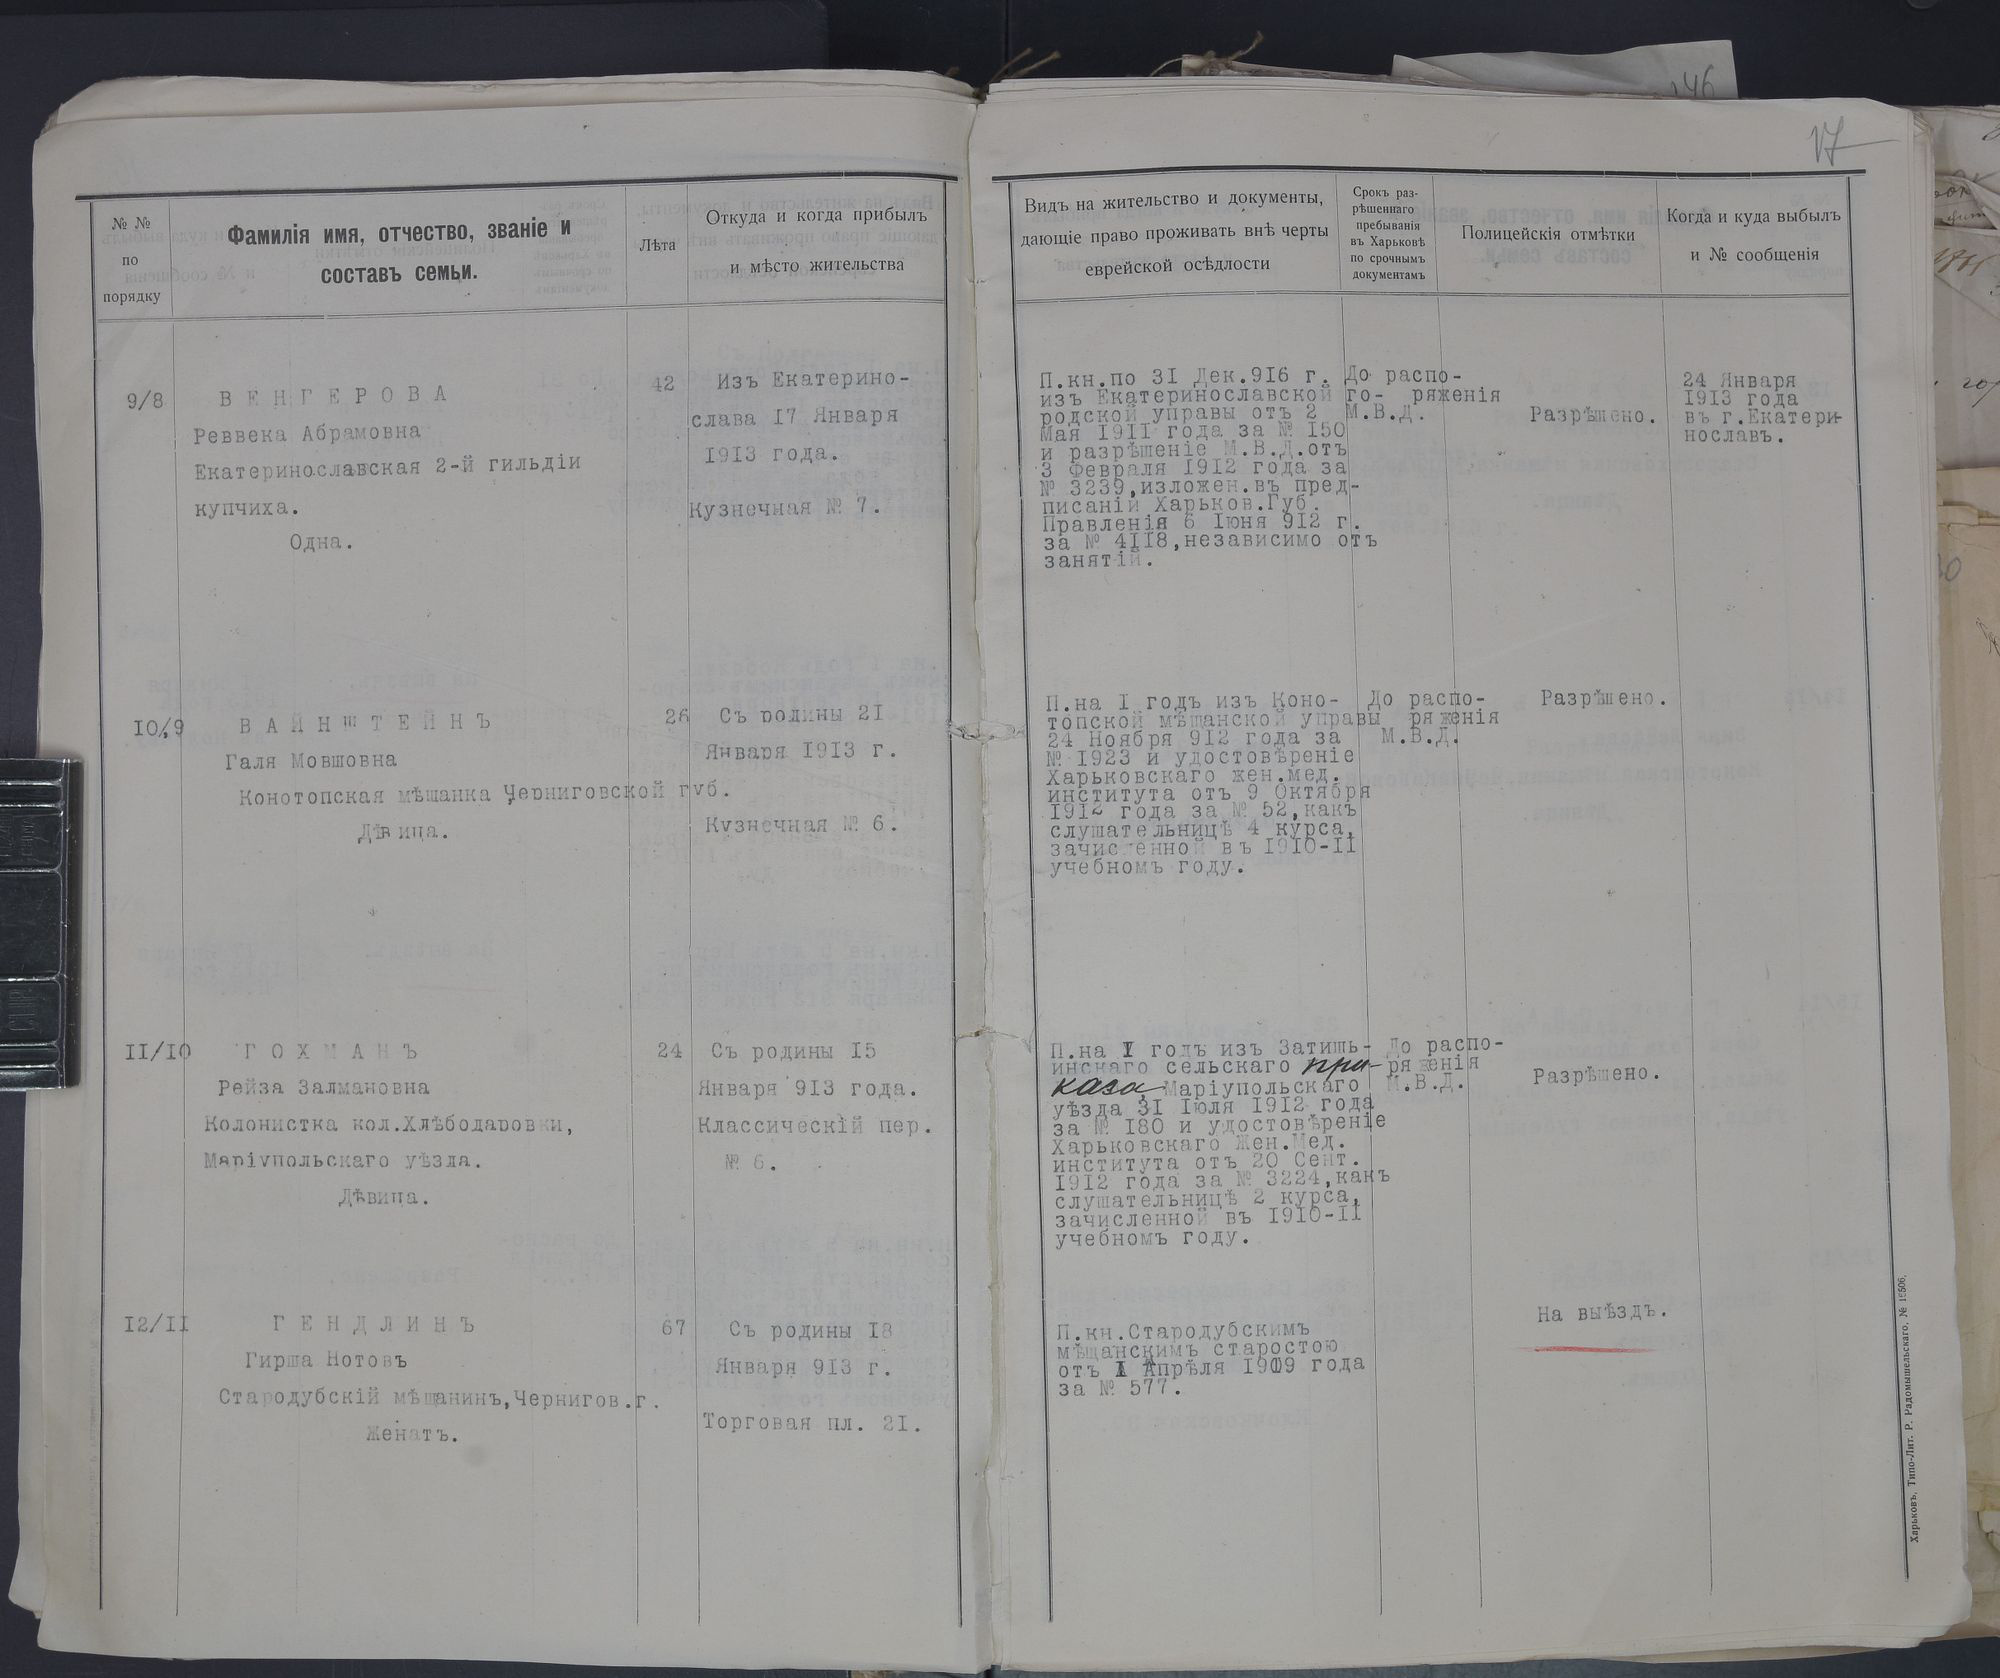 146
17
№ №
по
порядку
Фамилія имя, отчество, званіе и
составъ семьи.
Лѣта
Откуда и когда прибылъ
и мѣсто жительства
Видъ на жительство и документы,
дающіе право проживать внѣ черты
еврейской осѣдлости
Срокъ раз-
рѣшеннаго
пребыванія
въ Харьковѣ
по срочнымъ
документамъ
Полицейскія отмѣтки
Когда и куда выбылъ
и № сообщенія
9/8
ВЕНГЕРОВА
Реввека Абрамовна
Екатеринославская 2-й гильдіи
купчиха.
Одна.
42
Изъ Екатерино-
слава 17 Января
1913 года.
Кузнечная № 7.
П.кн.по 31 Дек.916 г.
изъ Екатеринославской го-
родской управы отъ 2
Мая 1911 года за № 150
и разрѣшеніе М.В.Д.отъ
3 Февраля 1912 года за
№ 3239,изложен.въ пред-
писаніи Харьков.Губ.
Правленія 6 Іюня 912 г.
за № 4118,независимо отъ
занятій.
До распо-
ряженія
М.В.Д.
Разрѣшено.
24 Января
1913 года
въ г.Екатери-
нославъ.
10/9
ВАЙНШТЕЙНЪ
Галя Мовшовна
Конотопская мѣщанка Черниговской губ.
Дѣвица.
26
Съ родины 21
Января 1913 г.
Кузнечная № 6.
П.на I годъ изъ Коно-
топской мѣщанской управы
24 Ноября 912 года за
№ 1923 и удостовѣреніе
Харьковскаго жен.мед.
института отъ 9 Октября
1912 года за № 52,какъ
слушательницѣ 4 курса,
зачисленной въ 1910-11
учебномъ году.
До распо-
ряженія
М.В.Д.
Разрѣшено.
11/10
ГОХМАНЪ
Рейза Залмановна
Колонистка кол.Хлѣбодаровки,
Маріупольскаго уѣзда.
Дѣвица.
24
Съ родины 15
Января 913 года.
Классическій пер.
№ 6.
П.на I годъ изъ Затишь-
инскаго сельскаго при-
каза, Маріупольскаго
уѣзда 31 Іюля 1912 года
за № 180 и удостовѣреніе
Харьковскаго Жен.Мед.
института отъ 20 Сент.
1912 года за № 3224,какъ
слушательницѣ 2 курса,
зачисленной въ 1910-11
учебномъ году.
До распо-
ряженія
М.В.Д.
Разрѣшено.
12/11
ГЕНДЛИНЪ
Гирша Нотовъ
Стародубскій мѣщанинъ,Чернигов.г.
Женатъ.
67
Съ родины 18
Января 913 г.
Торговая пл. 21.
П.кн.Стародубскимъ
мѣщанскимъ старостою
отъ I Апрѣля 1909 года
за № 577.
На выѣздъ.
Харьковъ, Типо-Лит. Р. Радомышельскаго, № 15506.
CLIP